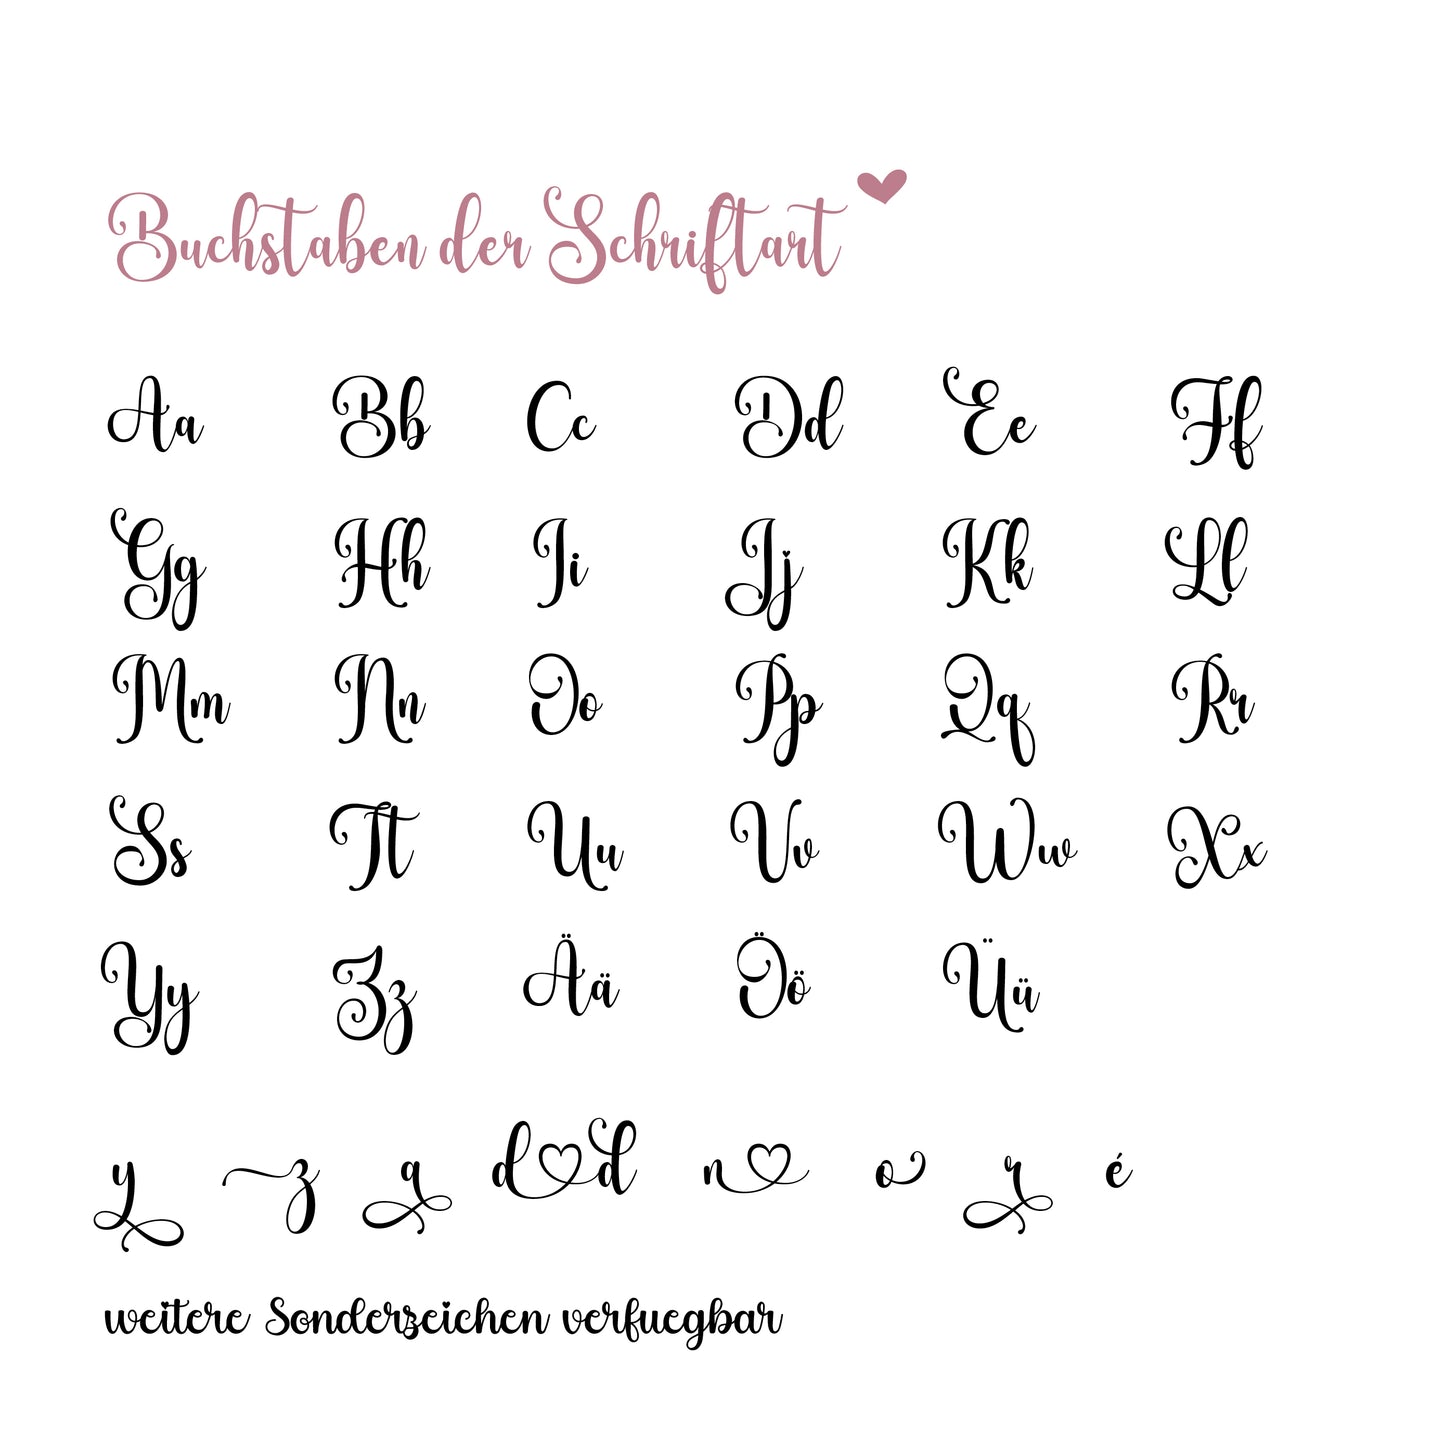 Buchstaben der Schriftart
Aa Bb Cc Dd Ee Ff
Gg Hh Ii Jj Kk Ll
Mm Nn Oo Pp Qq Rr
Ss Tt Uu Vv Ww Xx
Yy Zz Ää Öö Üü
y z q d d n o r é
weitere Sonderzeichen verfuegbar